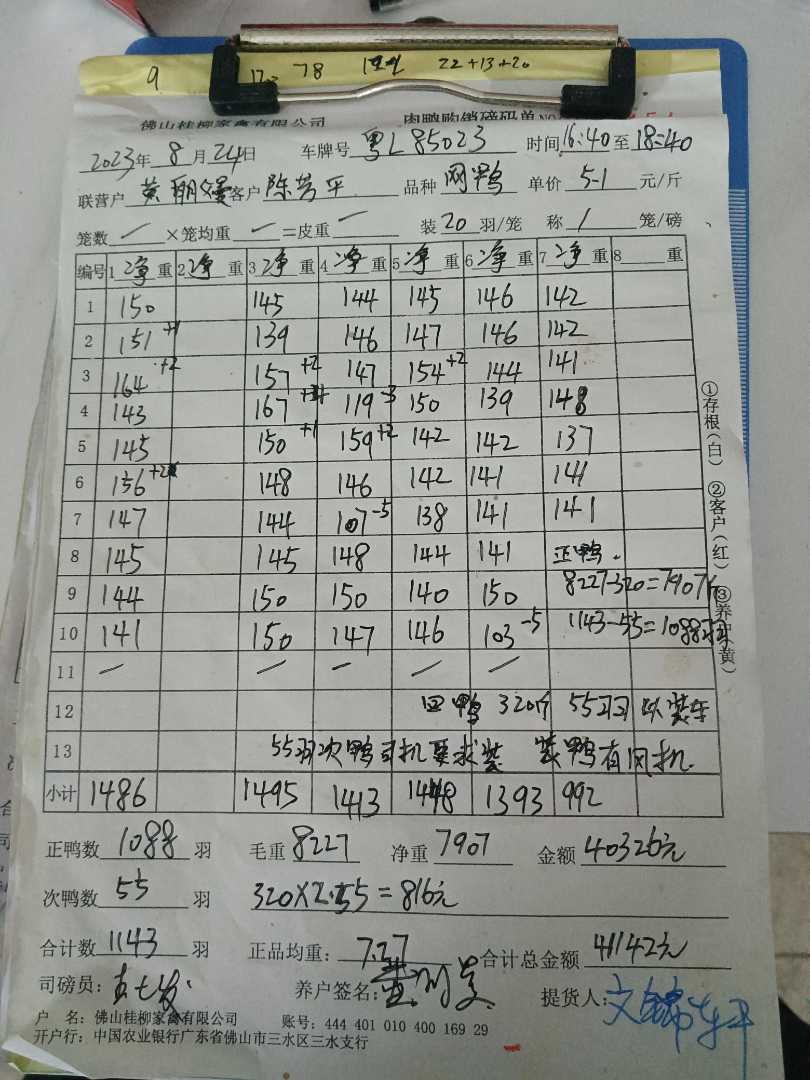 9 120 78 22+13+20
佛山桂柳家禽有限公司 肉鸭购销磅码单NO
2023年 8月24日 车牌号 粤L85023 时间16:40至18:40
联营户 黄丽嫚 客户 陈芳平 品种 网鸭 单价 5.1 元/斤
笼数 / ×笼均重 / =皮重 / 装20羽/笼 称 / 笼/磅
编号 1净重 2净重 3净重 4净重 5净重 6净重 7净重 8 重
1 150 145 144 145 146 142
2 151+1 139 146 147 146 142
3 164+2 157+2 147 154+2 144 141
4 143 167 119-3 150 139 148
5 145 150+1 159+2 142 142 137
6 156+2 148 146 142 141 141
7 147 144 107-5 138 141 141
8 145 145 148 144 141 正鸭.
9 144 150 150 140 150 8227-320=7907斤
10 141 150 147 146 103-5 1143-55=1088羽
11 / / / / /
12 回鸭 320斤 55羽 以装车
13 55羽次鸭司机要求装 装鸭有风机.
小计 1486 1495 1413 1448 1393 992
正鸭数 1088 羽 毛重 8227 净重 7907 金额 40326元
次鸭数 55 羽 320×2.55=816元
合计数 1143 羽 正品均重: 7.27 合计总金额 41142元
司磅员: 养户签名: 提货人:
户 名: 佛山桂柳家禽有限公司 账号: 444 401 010 400 169 29
开户行: 中国农业银行广东省佛山市三水区三水支行
①存根(白) ②客户(红) ③养户(黄)